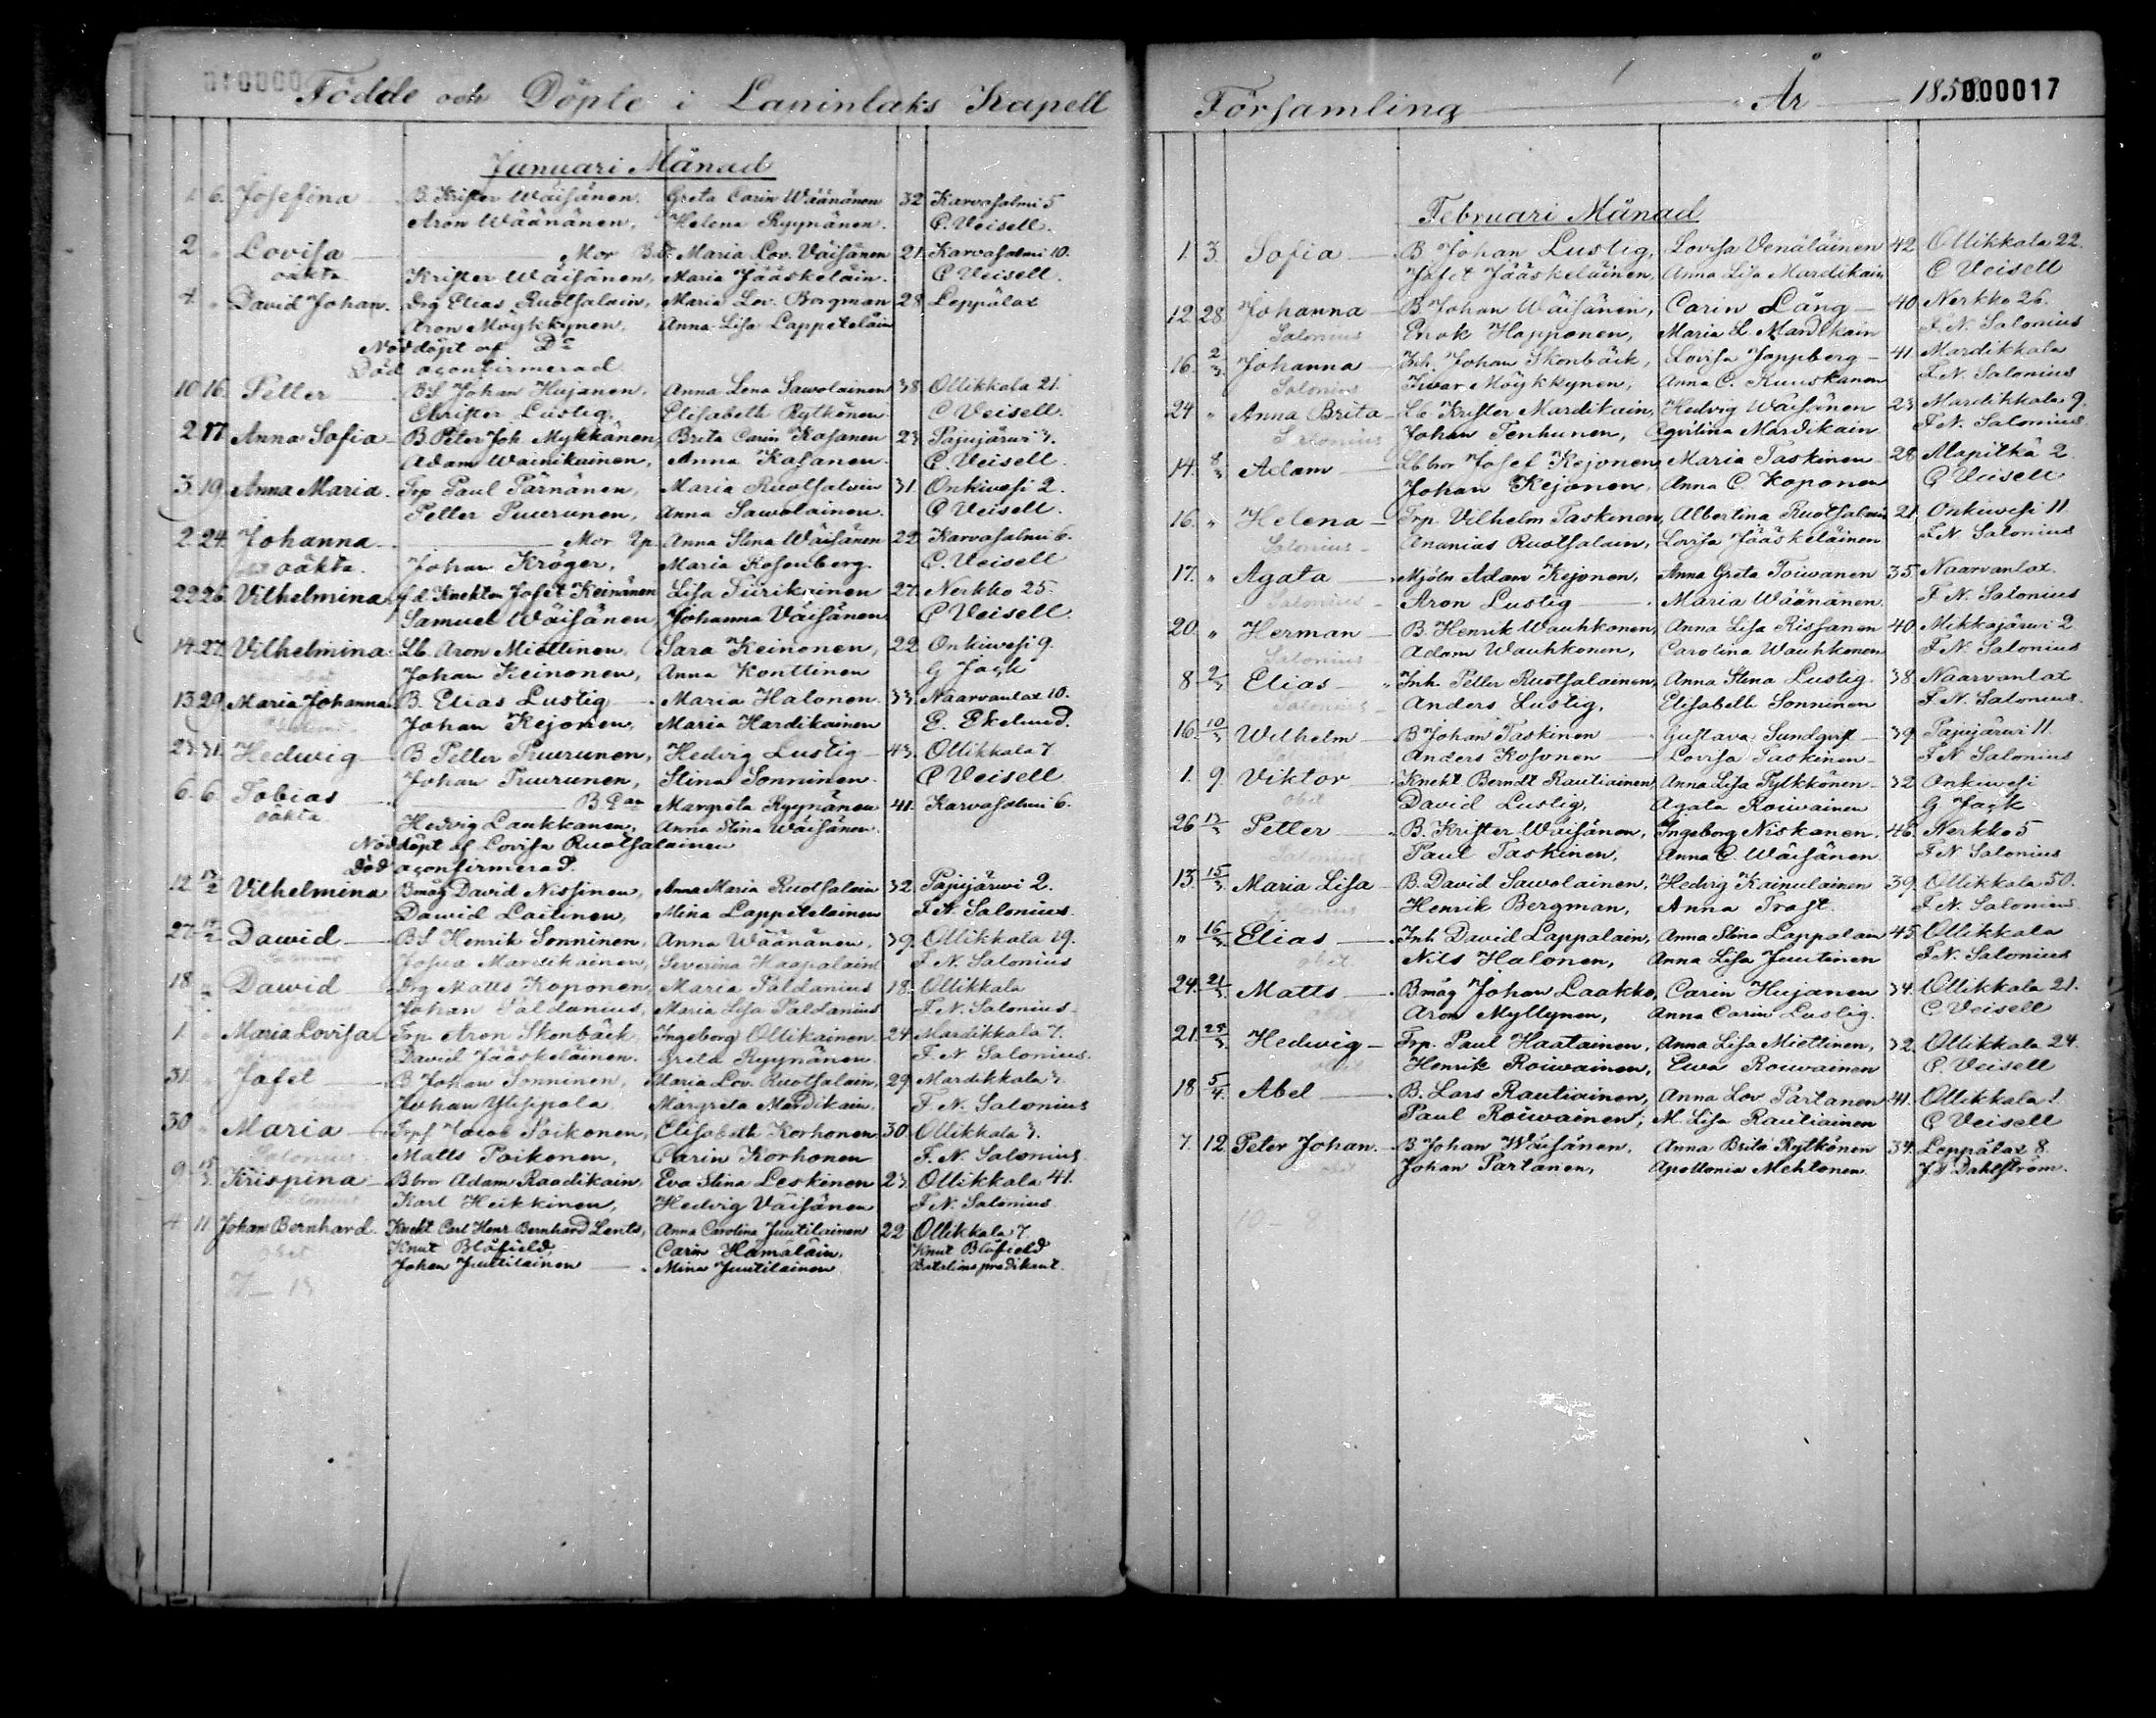 Födde och Döpte i Laninlaks Kapell
Januari Månad
1. 6. Josefina B. Krister Wäisänen. Greta Carin Wäänänen 32 Karvasalmi 5
Aron Wäänänen, Helena Ryynänen. C. Veisell.
2 " Lovisa Mor Maria Lov. Väisänen 21. Karvasalmi 10.
oäkta Krister Wäisänen, Maria Jääskeläin. C Veisell
4. " David Johan. Drg Elias Ruotsalain, Maria Lov. Borgman 28 Leppälax
Aron Möykkynen, Anna Lisa Lappeteläin
Nöddöpt af
Död oconfirmerad
10 16. Petter BS Johan Hujanen, Anna Lena Sawolainen 38 Ollikkala 21.
Christer Lustig, Elisabeth Rytkönen C Veisell.
2 17 Anna Sofia B. Peter Joh. Mykkänen, Brita Carin Kasanen 23 Pajujärwi 3.
Adam Wainikainen, Anna Kasanen. C. Veisell.
3. 19. Anna Maria. Trp Paul Pärnänen, Maria Ruotsalain 31. Onkiwesi 2.
Petter Puurunen, Anna Sawolainen. C Veisell.
2. 24. Johanna Mor Anna Stina Wäisänen 22 Karvasalmi 6.
oäkta. Johan Kröger, Maria Rosenberg. C. Veisell
22 26 Vilhelmina f.d. Knekten Jafet Keinänen Lisa Tiirikainen 27. Nerkko 25.
Samuel Wäisänen, Johanna Väisänen C Veisell.
14. 27. Vilhelmina Lb. Aron Miettinen, Sara Keinonen, 22 Onkiwesi 9.
Johan Keinonen, Anna Konttinen G Jack
13 29. Maria Johanna B. Elias Lustig Maria Halonen. 33. Naarvanlax 10.
Johan Kejonen, Maria Hardikainen E. Ekelund.
23 31. Hedwig B Petter Puurunen, Hedvig Lustig 43. Ollikkala 7
Johan Puurunen, Stina Sonninen. C Veisell
6. 6. Tobias Margreta Ryynänen 41. Karvasalmi 6.
oäkta Hedvig Laukkanen, Anna Stina Wäisänen.
Nöddöpt af Lovisa Ruotsalainen
Död oconfirmerad.
12 Vilhelmina Bmåg David Nissinen, Anna Maria Ruotsalain 32 Pajujärwi 2.
Dawid Laitinen, Mina Lappeteläinen F. N. Salonius.
27. Dawid BS Henrik Sonninen, Anna Wäänänen, 39. Ollikkala 19.
Josua Mardikainen, Severina Haapalain F. N. Salonius
18 Dawid Drg Matts Koponen, Maria Paldanius 18. Ollikkala
Johan Paldanius, Maria Lisa Paldanius F. N. Salonius.
1. Maria Lovisa Trp Aron Skonbäck Ingeborg Ollikainen. 24 Mardikkala 7.
David Jääskeläinen. Greta Ryynänen F. N. Salonius.
31. Jafet B Johan Sonninen, Maria Lov. Ruotsalain, 29. Mardikkala 3.
Johan Ylisippola Margreta Mardikain. F. N. Salonius
30 Maria Jacob Poikonen, Elisabeth Korhonen 30. Ollikkala 3.
Salonius Matts Poikonen, Carin Korhonen F. N. Salonius.
9. Krispina Bbror Adam Raadikain, Eva Stina Leskinen 23. Ollikkala 41.
Karl Heikkinen, Hedvig Väisänen F N. Salonius.
4 11 Johan Bernhard. Knekt Carl Henr. Bernhard Lents, Anna Carolina Juutilainen 22 Ollikkala 7.
obet Knut Blåfield, Carin Hämäläin, Knut Blåfield
Johan Juutilainen Mina Juutilainen Batalinspredikant.
Församling År 185 000017
Februari Månad
1. 3. Sofia B. Johan Lustig, Lovisa Venäläinen 42 Ollikkala 22.
Jafet Jääskeläinen, Anna Lisa Mardikain C Veisell
12 28. Johanna B. Johan Wäisänen, Carin Lång 40. Nerkko 26.
Salonius Enok Happonen, Maria L. Mardikain F. N. Salonius
16. 2/3 Johanna Inh. Johan Skonbäck, Lovisa Jappberg 41. Mardikkala
Salonius Iwar Möykkynen, Anna C. Kuuskanen F. N. Salonius
24 " Anna Brita Lb. Krister Mardikain, Hedvig Wäisänen 23 Mardikkala 9.
Salonius Johan Tenhunen, Agvilina Mardikain F. N. Salonius.
14. Adam Lb bror Josef Kejonen, Maria Taskinen 28 Alapitkä 2.
Johan Kejonen, Anna C. Koponen C Veisell
16. " Helena Trp. Vilhelm Taskinen, Albertina Ruotsalain 21. Onkiwesi 11
Salonius Ananias Ruotsalain, Lovisa Jääskeläinen F. N Salonius
17. " Agata Mjöln Adam Kejonen, Anna Greta Toiwanen 35. Naarvanlax.
Salonius Aron Lustig Maria Wäänänen. F. N. Salonius
20. " Herman B. Henrik Wauhkonen, Anna Lisa Rissanen 40. Mikkajärwi 2
Salonius Adam Wauhkonen, Carolina Wauhkonen F. N. Salonius
8 Elias Inh. Petter Ruotsalainen, Anna Stina Lustig. 38. Naarvanlax
Salonius Anders Lustig, Elisabeth Sonninen F. N. Salonius.
16. 10/3 Wilhelm B Johan Taskinen Gustava Sundqvist 39. Pajujärwi 11.
Anders Kosonen Lovisa Taskinen F. N Salonius
1. 9. Viktor Knekt Berndt Rautiainen Anna Lisa Pylkkönen 32 Onkiwesi
obet David Lustig, Agata Rouwainen G. Jack
26 Petter B. Krister Wäisänen, Ingeborg Niskanen. 46. Nerkko 5
Salonius Paul Taskinen, Anna C. Wäisänen F. N Salonius
13. 15/3 Maria Lisa B. David Sawolainen, Hedvig Kainulainen 39. Ollikkala 50.
Salonius Henrik Bergman, Anna Trast. F. N. Salonius.
" 16/3 Elias Inh David Lappalain, Anna Stina Lappalain 45. Ollikkala
obet Nils Halonen, Anna Lisa Juutinen F. N. Salonius
24. 21/3 Matts Bmåg Johan Laakko, Carin Hujanen 34. Ollikkala 21.
obet Aron Myllynen, Anna Carin Lustig. C Veisell
21. 25/3 Hedwig Trp. Paul Haatainen, Anna Lisa Miettinen, 32. Ollikkala 24.
obet Henrik Roiwainen, Ewa Rouwainen C. Veisell
18 5/4 Abel B. Lars Rautiainen, Anna Lov Partanen 41. Ollikkala 1
Paul Roiwainen, M. Lisa Rautiainen C Veisell
7. 12 Peter Johan. B Johan Wäisänen, Anna Brita Rytkönen 34. Leppälax 8.
obet Johan Partanen, Apollonia Mehtonen. J. F. Dahlström.
10 9